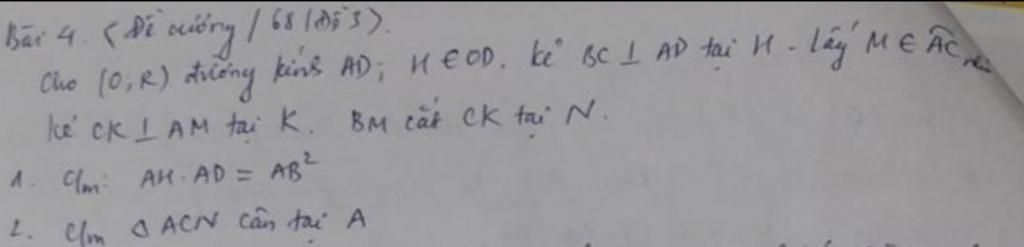 Bài 4. (Đề cương / 68 / Đề 3).
Cho (O; R) đường kính AD; H ∈ OD. kẻ BC ⊥ AD tại H. Lấy M ∈ AC nhỏ
kẻ CK ⊥ AM tại K. BM cắt CK tại N.
1. C/m: AH.AD = AB²
2. C/m ΔACN cân tại A